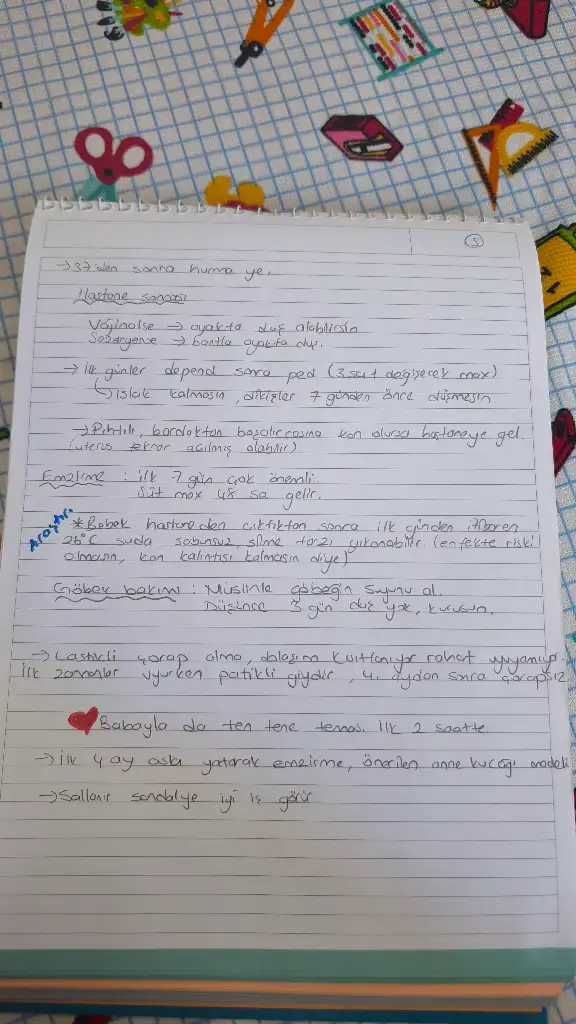 5
→ 37'den sonra hurma ye.
Hastane sonrası
Vajinalse → ayakta duş alabilirsin
Sezaryense → bantla ayakta duş.
→ ilk günler depend sonra ped (3 saat değişecek max)
↳ ıslak kalmasın, dikişler 7 günden önce düşmesin
→ Pıhtılı, bardaktan boşalırcasına kan olursa hastaneye gel.
(uterus tekrar açılmış olabilir)
Emzirme : ilk 7 gün çok önemli
Süt max 48 sa gelir.
Araştır.
* Bebek hastaneden çıktıktan sonra ilk günden itibaren
°C suda sabunsuz, silme tarzı yıkanabilir. (enfekte riski
olmasın, kan kalıntısı kalmasın diye)
Göbek bakımı : Müslinle göbeğin suyunu al.
Düşünce 3 gün duş yok, kurusun.
→ Lastikli çorap alma, dolaşım kısıtlanıyor rahat uyuyamıyo.
ilk zamanlar uyurken patikli giydir, 4. aydan sonra çorapsız.
Babayla da ten tene temas. ilk 2 saatte.
→ ilk 4 ay asla yatarak emzirme, önerilen anne kucağı modeli
→ Sallanır sandalye iyi iş görür